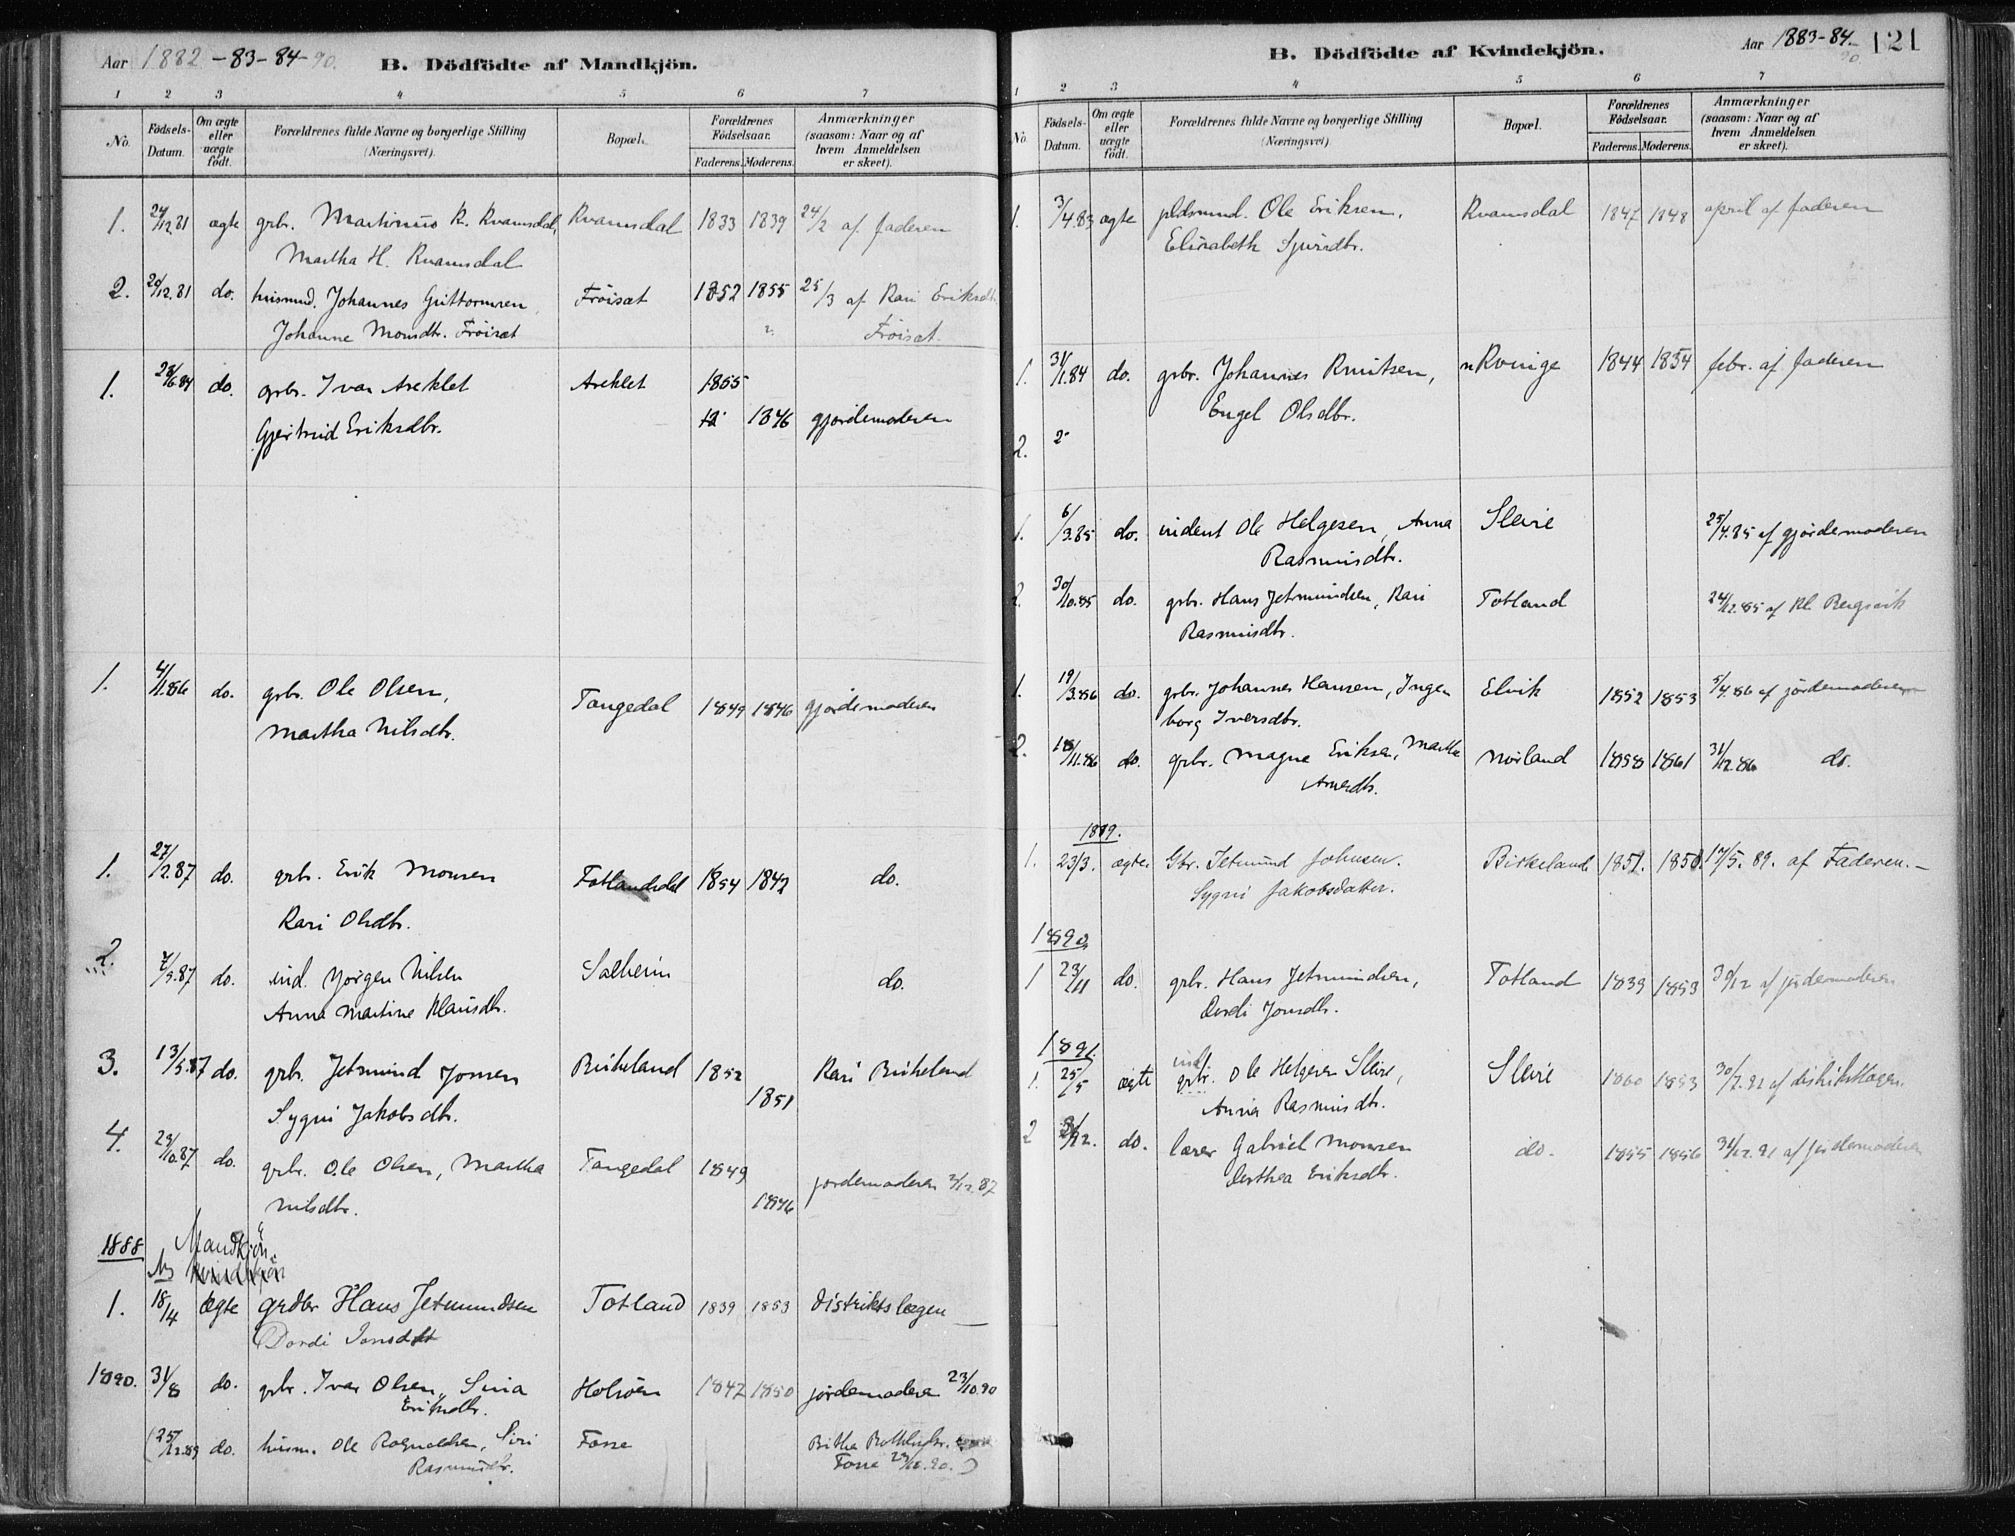 Aar 1882-83-84-90. B. Dödfödte af Mandkjön.
1 2 3 4 5 6 7
No. Födsels-Datum. Om ægte eller uægte födt. Forældrenes fulde Navne og borgerlige Stilling (Næringsvei). Bopæl. Forældrenes Födselsaar. Faderens. Moderens. Anmærkninger (saasom: Naar og af hvem Anmeldelsen er skeet).
1. 24/12.81 ægte grb. Martinus K. Kvamsdal, Kvamsdal 1833 1839 24/2 af faderen
Martha H. Kvamsdal
2. 26/12.81 do. husmd. Johannes Guttormsen, Fröiset 1852 1855 25/3 af Kari Eriksdtr.
Johanne Monsdtr. Fröiset ? Fröiset.
1. 28/6.84 do. grbr. Ivar Areklet Areklet 1855
Gjertrud Eriksdtr. 1846 gjordemoderen
1. 4/11.86 do. grbr. Ole Olsen, Tangedal 1849 1846 gjordemoderen
Martha Nilsdtr.
1. 27/2.87 do. grbr. Erik Monsen Totlandsdal 1854 1842 do.
Kari Olsdtr.
2. 7/3.87 do. ind. Jörgen Nilsen Solheim do.
Anna Martine Klausdtr.
3. 13/5.87 do. grbr. Jetmund Jonsen Birkeland 1852 Kari Birkeland
Sygni Jakobsdtr. 1851
4. 29/10.87 do. grbr. Ole Olsen, Martha Tangedal 1849 jordemoderen 3/12.87
Nilsdtr. 1846
1888 Mandkjön
No Kvindekjön
1. 18/4 ægte grdbr Hans Jetmundsen Totland 1839 1853 distriktslægen
Dordi Jonsdtr
1890. 31/8 do. grbr. Ivar Olsen, Siria Holsöen 1847 1850 jordemoderen 23/10.90
Eriksdtr.
(25/12.89 do. husm. Ole Rognaldsen, Siri Fosse Brithe
Rasmusdtr. Fosse .90.)
Aar 1883-84-90 121
B. Dödfödte af Kvindekjön.
1 2 3 4 5 6 7
No. Födsels-Datum. Om ægte eller uægte födt. Forældrenes fulde Navne og borgerlige Stilling (Næringsvei) Bopæl. Forældrenes Födselsaar. Faderens. Moderens. Anmærkninger (saasom: Naar og af hvem Anmeldelsen er skeet).
1. 3/4.83 ægte pldsmnd. Ole Eriksen, Kvamsdal 1847 1848 april af faderen
Elisabeth Sjursdtr.
1. 31/1.84 do. grbr. Johannes Knutsen, Kvinge 1844 1854 febr. af faderen
Engel Olsdtr.
2. 2
1. 6/3.85 do. inderst Ole Helgesen, Anna Sleire 25/4.85 af gjordemoderen
Rasmusdtr.
2. 30/10.85 do. grbr. Hans Jetmundsen, Kari Totland 24/12.85 af Kl. Bergsvik
Rasmusdtr.
1. 19/3.86 do. grbr. Johannes Hansen, Ingeborg Iversdtr. Elvik 1852 1853 5/4.86 af jordemoderen
2. 18/11.86 do. grbr. Magne Eriksen, Martha Norland 1858 1861 31/12.86 do.
Arnesdtr.
1889.
1. 23/3. ægte Gbr. Jetmund Johnsen. Birkeland 1852. 1850. 17/5.89. af Faderen.-
Sygni Jakobsdatter.
1890
1 23/11 do. grbr. Hans Jetmundsen, Totland 1839 1853 30/12 af jordemoderen
Dordi Jonsdtr.
1891.
1. 25/5 ægte ind. grbr. Ole Helgesen Sleire, Sleire 1860 1853 30/7.91 af distriktslægen
Anna Rasmusdtr.
2 /12. do. lærer Gabriel Monsen do. 1855 1856 31/12.91 af jordemoderen
Dorthea Eriksdtr.